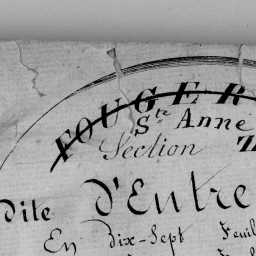 FOUGER
Ste Anne
Section
dite D'Entre
En Dix-Sept Feuil